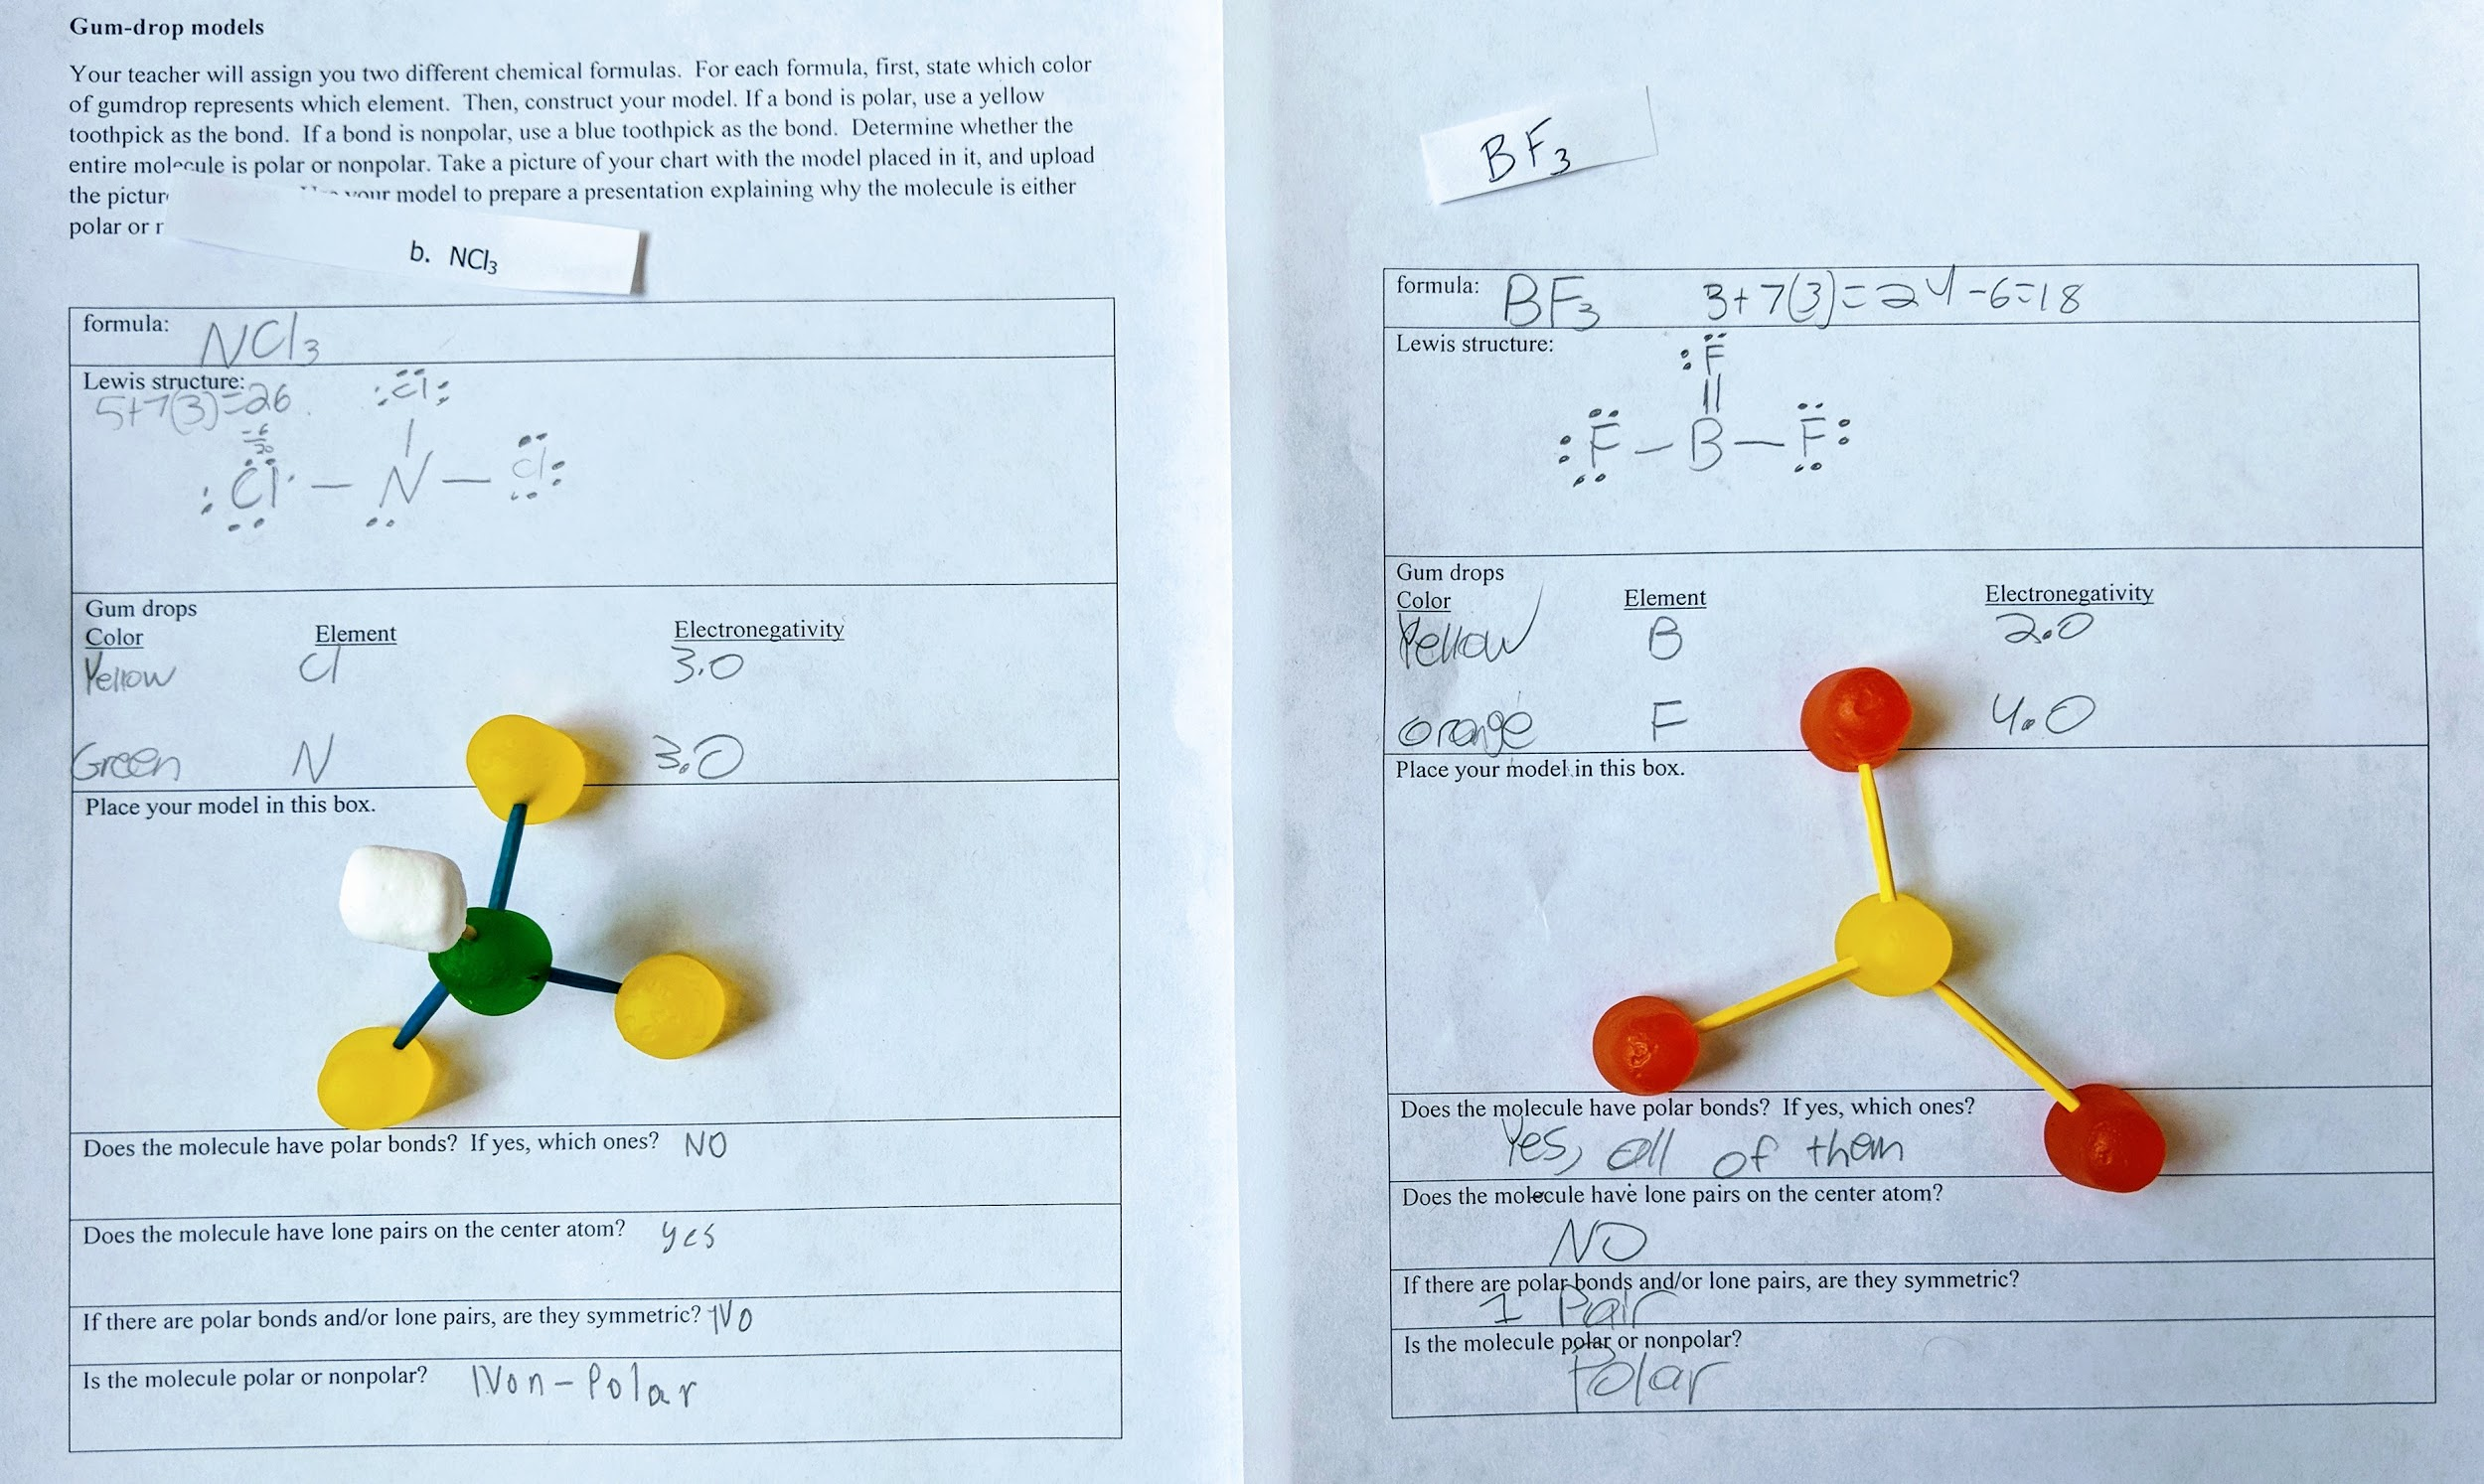 Gum-drop models
Your teacher will assign you two different chemical formulas. For each formula, first, state which color
of gumdrop represents which element. Then, construct your model. If a bond is polar, use a yellow
toothpick as the bond. If a bond is nonpolar, use a blue toothpick as the bond. Determine whether the
entire molecule is polar or nonpolar. Take a picture of your chart with the model placed in it, and upload
the pictur your model to prepare a presentation explaining why the molecule is either
polar or r
b. NCl₃
formula: NCl₃
Lewis structure:
5+7(3)=26
-6
:Cl:
:Cl - N - Cl:
Gum drops
Color Element Electronegativity
Yellow Cl 3.0
Green N 3.0
Place your model in this box.
Does the molecule have polar bonds? If yes, which ones? NO
Does the molecule have lone pairs on the center atom? yes
If there are polar bonds and/or lone pairs, are they symmetric? NO
Is the molecule polar or nonpolar? Non-Polar
BF₃
formula: BF₃ 3+7(3)=24-6=18
Lewis structure:
:F
:F - B - F:
Gum drops
Color Element Electronegativity
Yellow B 2.0
Orange F 4.0
Place your model in this box.
Does the molecule have polar bonds? If yes, which ones?
Yes, all of them
Does the molecule have lone pairs on the center atom?
NO
If there are polar bonds and/or lone pairs, are they symmetric?
1 Pair
Is the molecule polar or nonpolar?
Polar